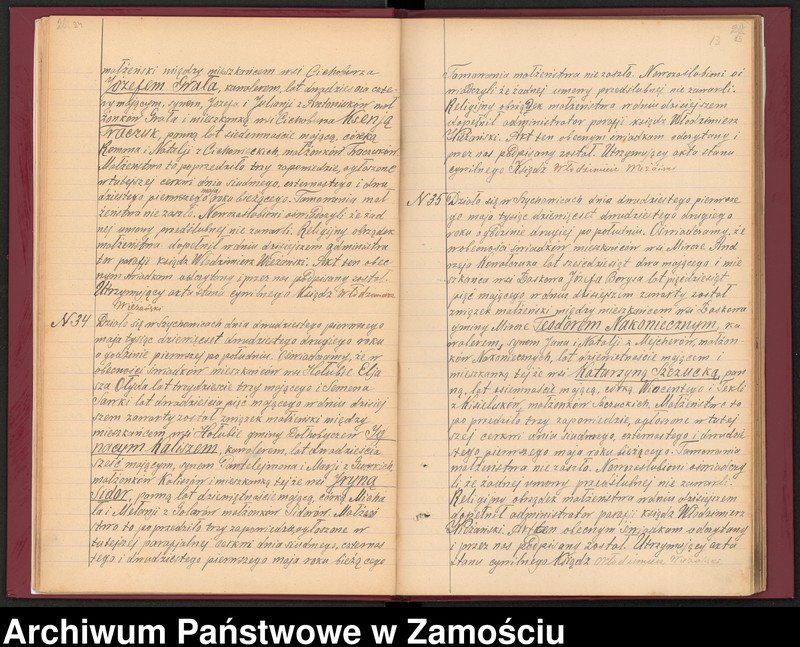 małżeński między mieszkańcem wsi Cichobórza
Józefem Grała, kawalerem, lat dwadzieścia czte-
ry mającym, synem, Józefa i Julianny z Antoniuków mał
żonków Grała i mieszkanką wsi Cichobórza Ksenją
Tkaczuk, panną lat siedemnaście mającą, córką
Romana i Natalji z małżonków Tkaczuków.
Małżeństwo to poprzedziło trzy zapowiedzie, ogłoszone
w tutejszej cerkwi dnia siódmego, czternastego i dwu
dziestego pierwszego maja roku bieżącego. Tamowania mał
żeństwa nie zaszło. Nowozaślubieni oświadczyli że żad
nej umowy przedślubnej nie zawarli. Religijny obrządek
małżeństwa dopełnił w dniu dzisiejszem administra
tor parafji ksiądz Włodzimierz Akt ten obec
nym świadkom odczytany i przez nas podpisany został.
Utrzymujący akta stanu cywilnego Ksiądz Włodzimierz
N 34 Działo się w Szychowicach dnia dwudziestego pierwszego
maja tysiąc dziewięćset dwudziestego drugiego roku
o godzinie pierwszej po południu. Oświadczamy, że w
obecności świadków mieszkańców wsi Hołubie Elja
sza lat trzydzieści trzy mającego i Semena
Sawki lat dwadzieścia pięć mającego w dniu dzisiej
szem zawarty został związek małżeński między
mieszkańcem wsi Hołubie gminy Dołhobyczew Ig
nacym Kaliszem, kawalerem, lat dwadzieścia
sześć mającym, synem Pantelejmona i Marji z
małżonków Kaliszów i mieszkanką tejże wsi Iryną
Sidor, panną lat dziewiętnaście mającą, córką Micha
ła i Melanji z małżonków Sidorów. Małżeń
stwo to poprzedziło trzy zapowiedzie, ogłoszone w
tutejszej parafjalnej cerkwi dnia siódmego, czternas
tego i dwudziestego pierwszego maja roku bieżącego
13
Tamowania małżeństwa nie zaszło. Nowozaślubieni oś
wiadczyli, że żadnej umowy przedślubnej nie zawarli.
Religijny obrządek małżeństwa w dniu dzisiejszem
dopełnił administrator parafji ksiądz Włodzimierz
Akt ten obecnym świadkom odczytany i
przez nas podpisany został. Utrzymujący akta stanu
cywilnego Ksiądz Włodzimierz
N 35 Działo się w Szychowicach dnia dwudziestego pierwsze
go maja tysiąc dziewięćset dwudziestego drugiego
roku o godzinie drugiej po południu. Oświadczamy, że
w obecności świadków mieszkańców wsi Mircze And
rzeja Kowalczuka lat sześćdziesiąt dwa mającego i mie
szkańca wsi Łaskowa Józefa Borysa lat pięćdziesiąt
pięć mającego w dniu dzisiejszem zawarty został
związek małżeński między mieszkańcem wsi Łaskowa
gminy Mircze Teodorem Nakoniecznym, ka
walerem, synem Jana i Natalji z małżon-
ków Nakoniecznych, lat mającym i
mieszkanką tejże wsi Katarzyną Szczucką, pan
ną, lat osiemnaście mającą, córką Wincentego i Tekli
z małżonków Szczuckich. Małżeństwo to
poprzedziło trzy zapowiedzie, ogłoszone w tutej
szej cerkwi dnia siódmego, czternastego i dwudzie
stego pierwszego maja roku bieżącego. Tamowania
małżeństwa nie zaszło. Nowozaślubieni oświadczy
li, że żadnej umowy przedślubnej nie zawarli.
Religijny obrządek małżeństwa w dniu dzisiejszem
dopełnił administrator parafji ksiądz Włodzimierz
Akt ten obecnym świadkom odczytany
i przez nas podpisany został. Utrzymujący akta
stanu cywilnego Ksiądz Włodzimierz
Archiwum Państwowe w Zamościu